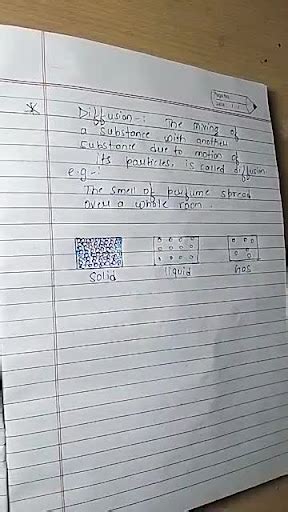 Page No.
Date
* Diffusion-: The mixing of
a substance with another
substance due to motion of
its particles, is called diffusion
e.g-:
The smell of perfume spread
over a whole room.
Solid liquid Gas